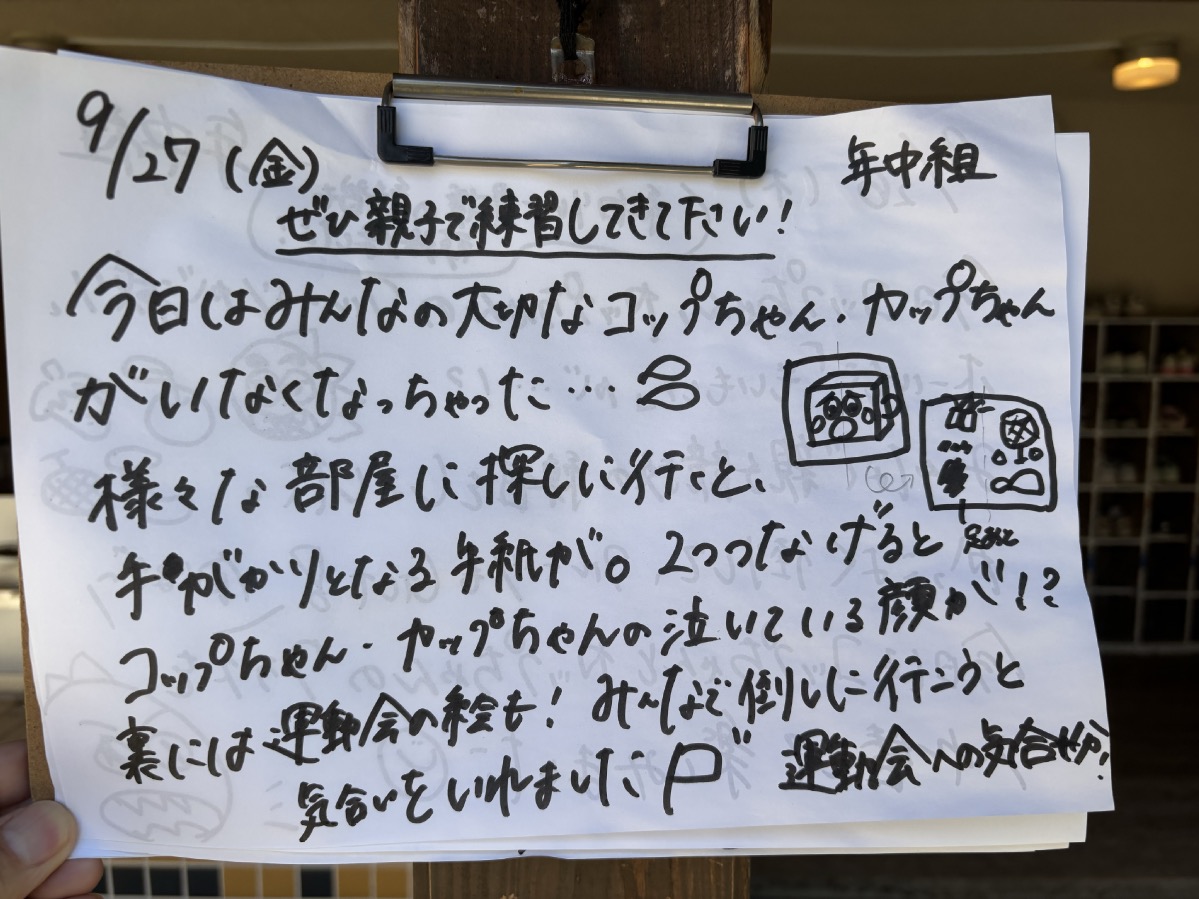 9/27(金)
年中組
ぜひ親子で練習してきて下さい!
今日はみんなの大切なコップちゃん・カップちゃん
がいなくなっちゃった…
様々な部屋に探しに行くと、
手がかりとなる手紙が。2つつなげると
コップちゃん・カップちゃんの泣いている顔が!?
裏には運動会の絵も!みんなで倒しに行こうと
気合いをいれました
運動会への気合十分!